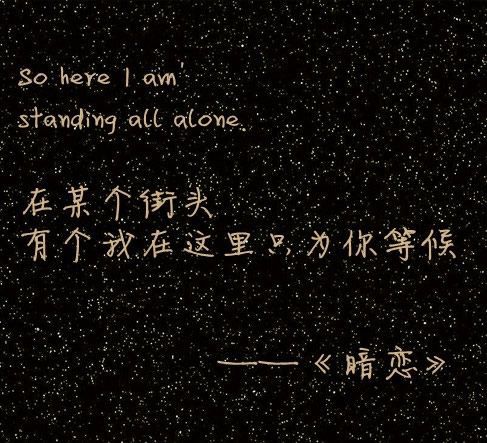 So here I am'
standing all alone.
在某个街头
有个我在这里只为你等候
——《暗恋》